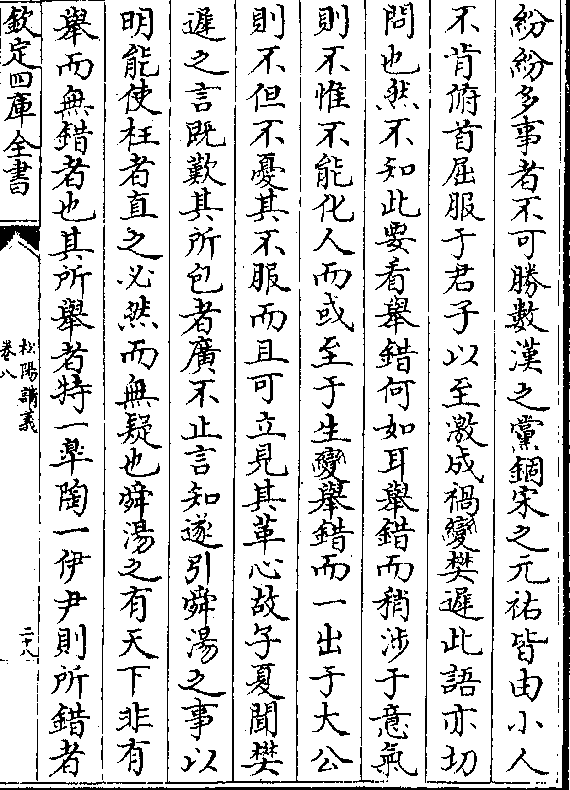 紛紛多事者不可勝數漢之黨錮宋之元祐皆由小人
不肯俯首屈服于君子以至激成禍變樊遲此語亦切
問也然不知此要看舉錯何如耳舉錯而稍涉于意氣
則不惟不能化人而或至于生變舉錯而一出于大公
則不但不憂其不服而且可立見其革心故子夏聞樊
遲之言既歎其所包者廣不止言知遂引舜湯之事以
明能使枉者直之必然而無疑也舜湯之有天下非有
舉而無錯者也其所舉者特一臯陶一伊尹則所錯者
欽定四庫全書
松陽講義
卷八
二八